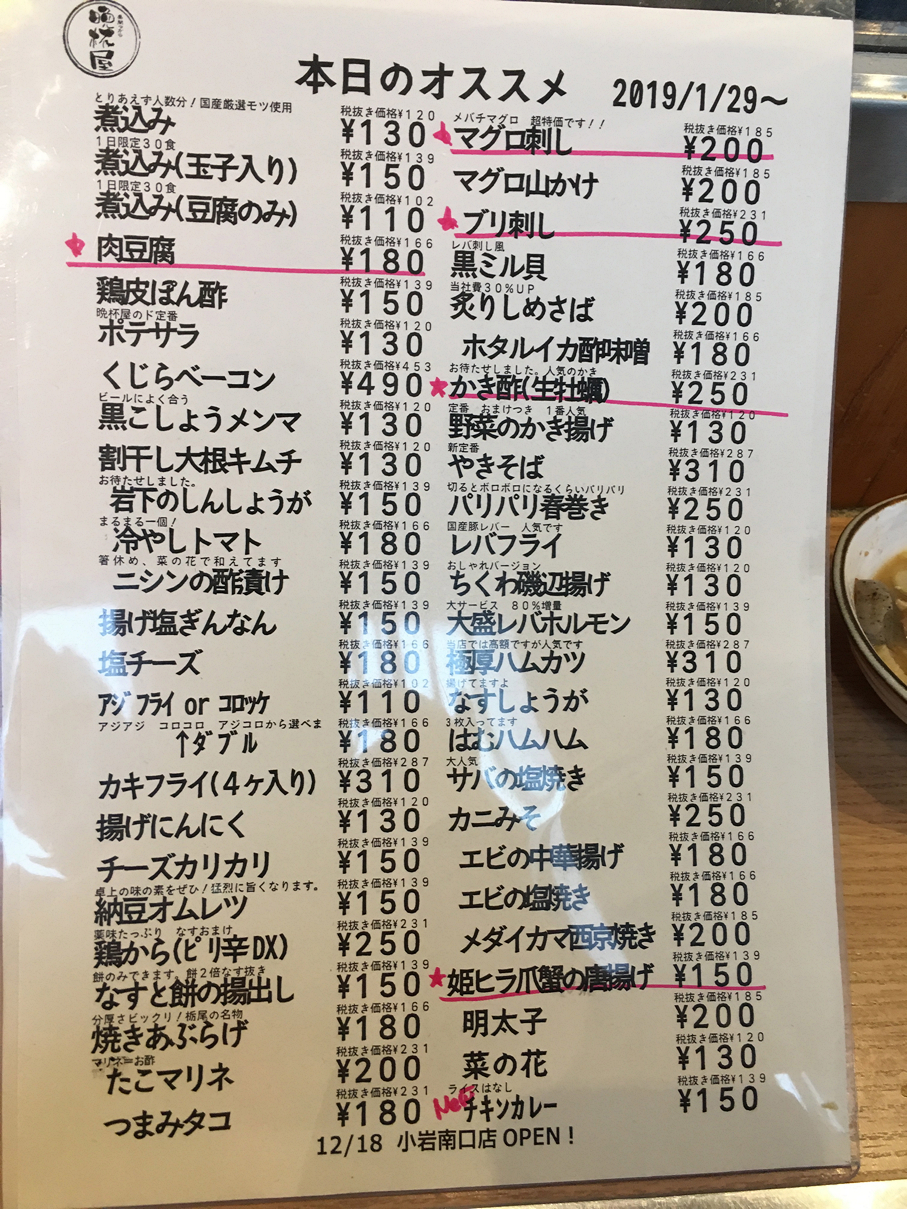 晩杯屋
本日のオススメ 2019/1/29〜
とりあえず人数分!国産厳選モツ使用 税抜き価格¥120
煮込み ¥130
1日限定30食 税抜き価格¥139
煮込み(玉子入り) ¥150
1日限定30食 税抜き価格¥102
煮込み(豆腐のみ) ¥110
税抜き価格¥166
肉豆腐 ¥180
税抜き価格¥139
鶏皮ぽん酢 ¥150
晩杯屋のド定番 税抜き価格¥120
ポテサラ ¥130
税抜き価格¥453
くじらベーコン ¥490
ビールによく合う 税抜き価格¥120
黒こしょうメンマ ¥130
税抜き価格¥120
割干し大根キムチ ¥130
お待たせしました。 税抜き価格¥139
岩下のしんしょうが ¥150
まるまる一個! 税抜き価格¥166
冷やしトマト ¥180
箸休め、菜の花で和えてます 税抜き価格¥139
ニシンの酢漬け ¥150
税抜き価格¥139
揚げ塩ぎんなん ¥150
税抜き価格¥166
塩チーズ ¥180
税抜き価格¥102
アジフライ or コロッケ ¥110
アジアジ コロコロ アジコロから選べま 税抜き価格¥166
↑ダブル ¥180
税抜き価格¥287
カキフライ(4ヶ入り) ¥310
税抜き価格¥120
揚げにんにく ¥130
税抜き価格¥139
チーズカリカリ ¥150
卓上の味の素をぜひ!猛烈に旨くなります。 税抜き価格¥139
納豆オムレツ ¥150
薬味たっぷり なすおまけ 税抜き価格¥231
鶏から(ピリ辛DX) ¥250
餅のみできます。餅2倍なす抜き 税抜き価格¥139
なすと餅の揚出し ¥150
分厚さビックリ!栃尾の名物 税抜き価格¥166
焼きあぶらげ ¥180
マリネ=お酢 税抜き価格¥231
たこマリネ ¥200
税抜き価格¥231
つまみタコ ¥180
メバチマグロ 超特価です!! 税抜き価格¥185
マグロ刺し ¥200
税抜き価格¥185
マグロ山かけ ¥200
税抜き価格¥231
ブリ刺し ¥250
レバ刺し風 税抜き価格¥166
黒ミル貝 ¥180
当社費30%UP 税抜き価格¥185
炙りしめさば ¥200
税抜き価格¥166
ホタルイカ酢味噌 ¥180
お待たせしました。人気のかき 税抜き価格¥231
かき酢(生牡蠣) ¥250
定番 おまけつき 1番人気 税抜き価格¥120
野菜のかき揚げ ¥130
新定番 税抜き価格¥287
やきそば ¥310
切るとボロボロになるくらいパリパリ 税抜き価格¥231
パリパリ春巻き ¥250
国産豚レバー 人気です 税抜き価格¥120
レバフライ ¥130
おしゃれバージョン 税抜き価格¥120
ちくわ磯辺揚げ ¥130
大サービス 80%増量 税抜き価格¥139
大盛レバホルモン ¥150
当店では高額ですが人気です 税抜き価格¥287
極厚ハムカツ ¥310
揚げてますよ 税抜き価格¥120
なすしょうが ¥130
3枚入ってます 税抜き価格¥166
はむハムハム ¥180
大人気 税抜き価格¥139
サバの塩焼き ¥150
税抜き価格¥231
カニみそ ¥250
税抜き価格¥166
エビの中華揚げ ¥180
税抜き価格¥166
エビの塩焼き ¥180
税抜き価格¥185
メダイカマ西京焼き ¥200
税抜き価格¥139
姫ヒラ爪蟹の唐揚げ ¥150
税抜き価格¥185
明太子 ¥200
税抜き価格¥120
菜の花 ¥130
ライスはなし 税抜き価格¥139
New チキンカレー ¥150
12/18 小岩南口店 OPEN!